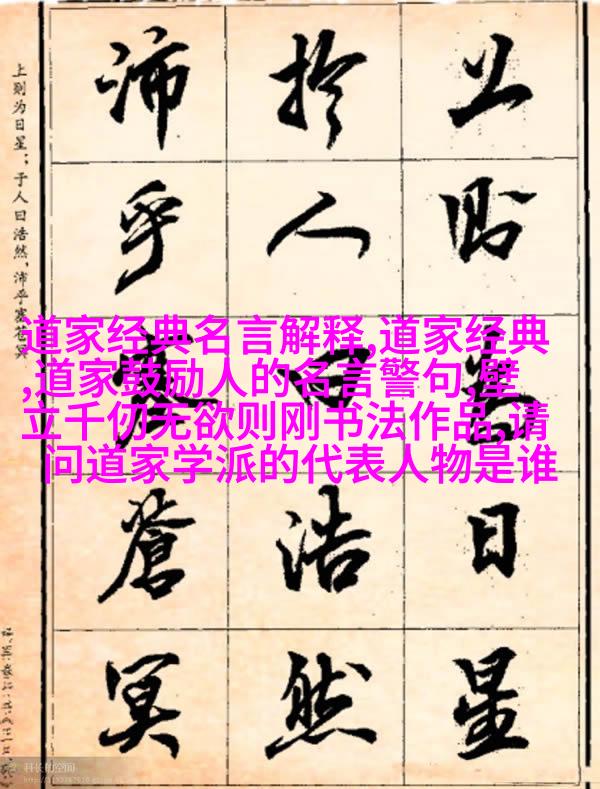 上則為日星
於人曰浩然
沛乎塞蒼冥
上则为日星；于人曰浩然，沛乎塞苍冥
道家经典名言解释,道家经典
,道家鼓励人的名言警句,壁
立千仞无欲则刚书法作品,请
问道家学派的代表人物是谁
科长的空间